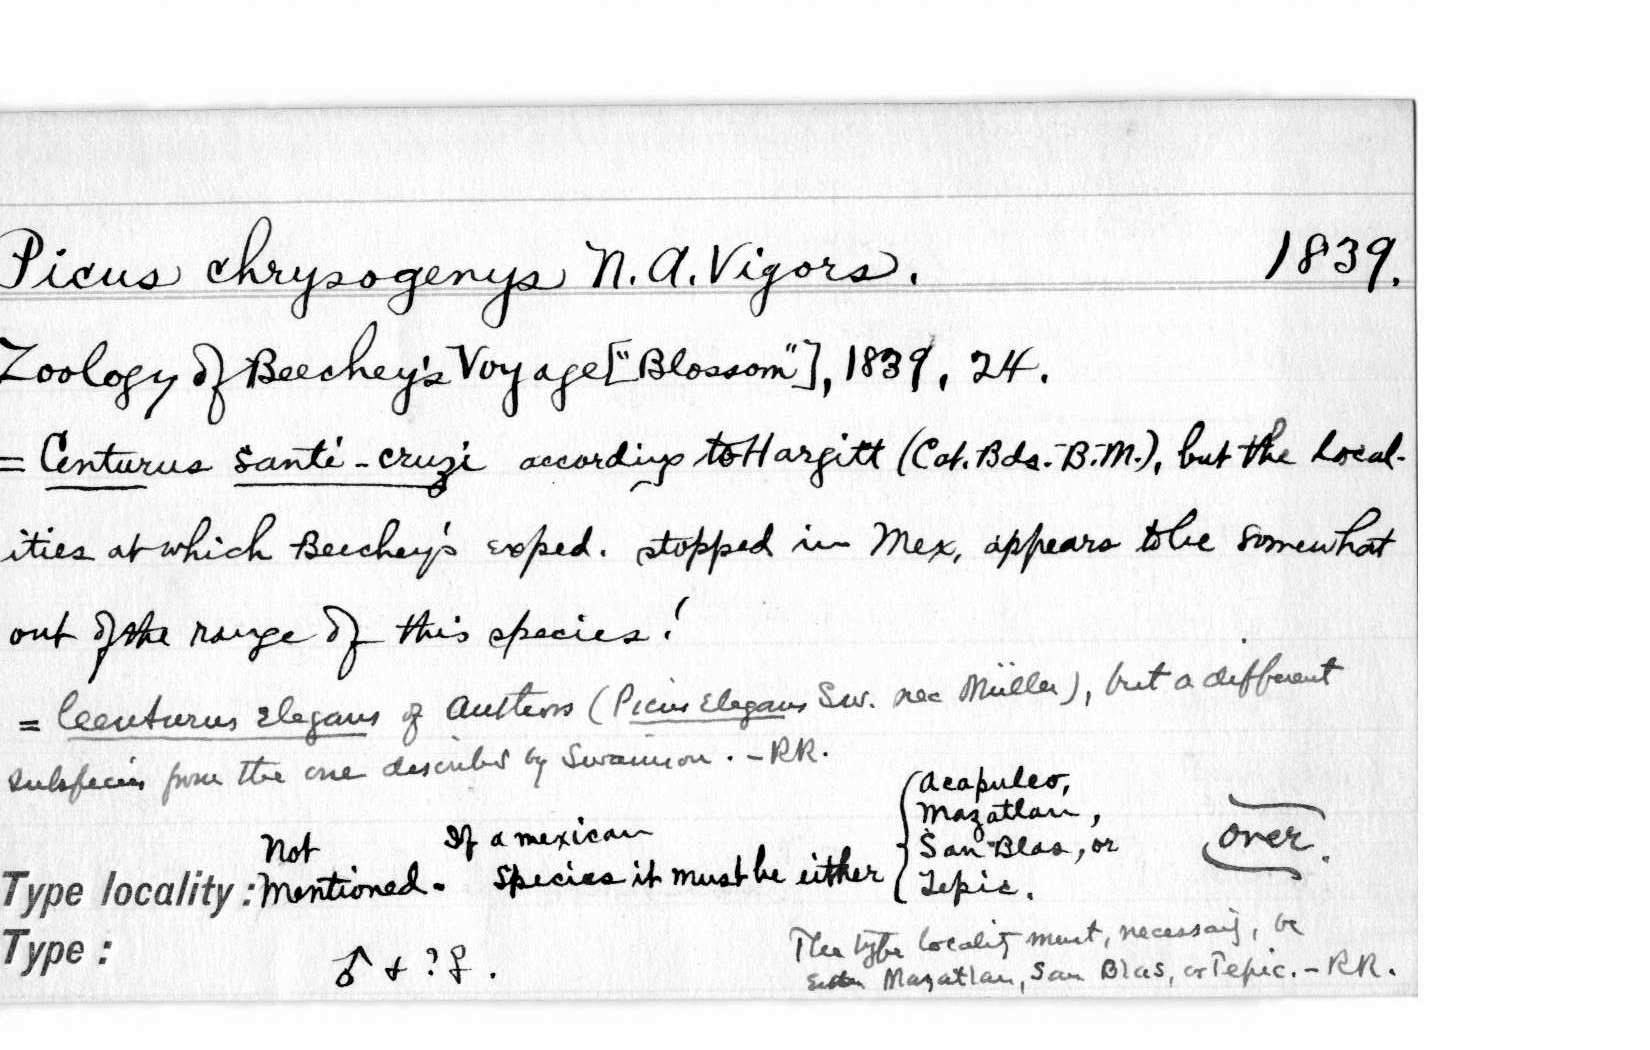 Picus chrysogenys N.A. Vigors. 1839.
Zoology of Beechey's Voyage ["Blossom"], 1839, 24.
= Centurus santi-cruzi according to Hargitt (Cat. Bds. B.M.), but the local-
ities at which Beechey's exped. stopped in Mex, appears to be somewhat
out of the range of this species!
= Centurus elegans of Authors (Picus elegans Sw. nec Müller), but a different
subspecies from the one described by Swainson. - RR.
Type locality: Not Mentioned. If a mexican species it must be either { Acapulco, Mazatlan, San Blas, or Tepic. over.
Type: ♂ & ? ♀.
The type locality must, necessarily, be
either Mazatlan, San Blas, or Tepic. - RR.